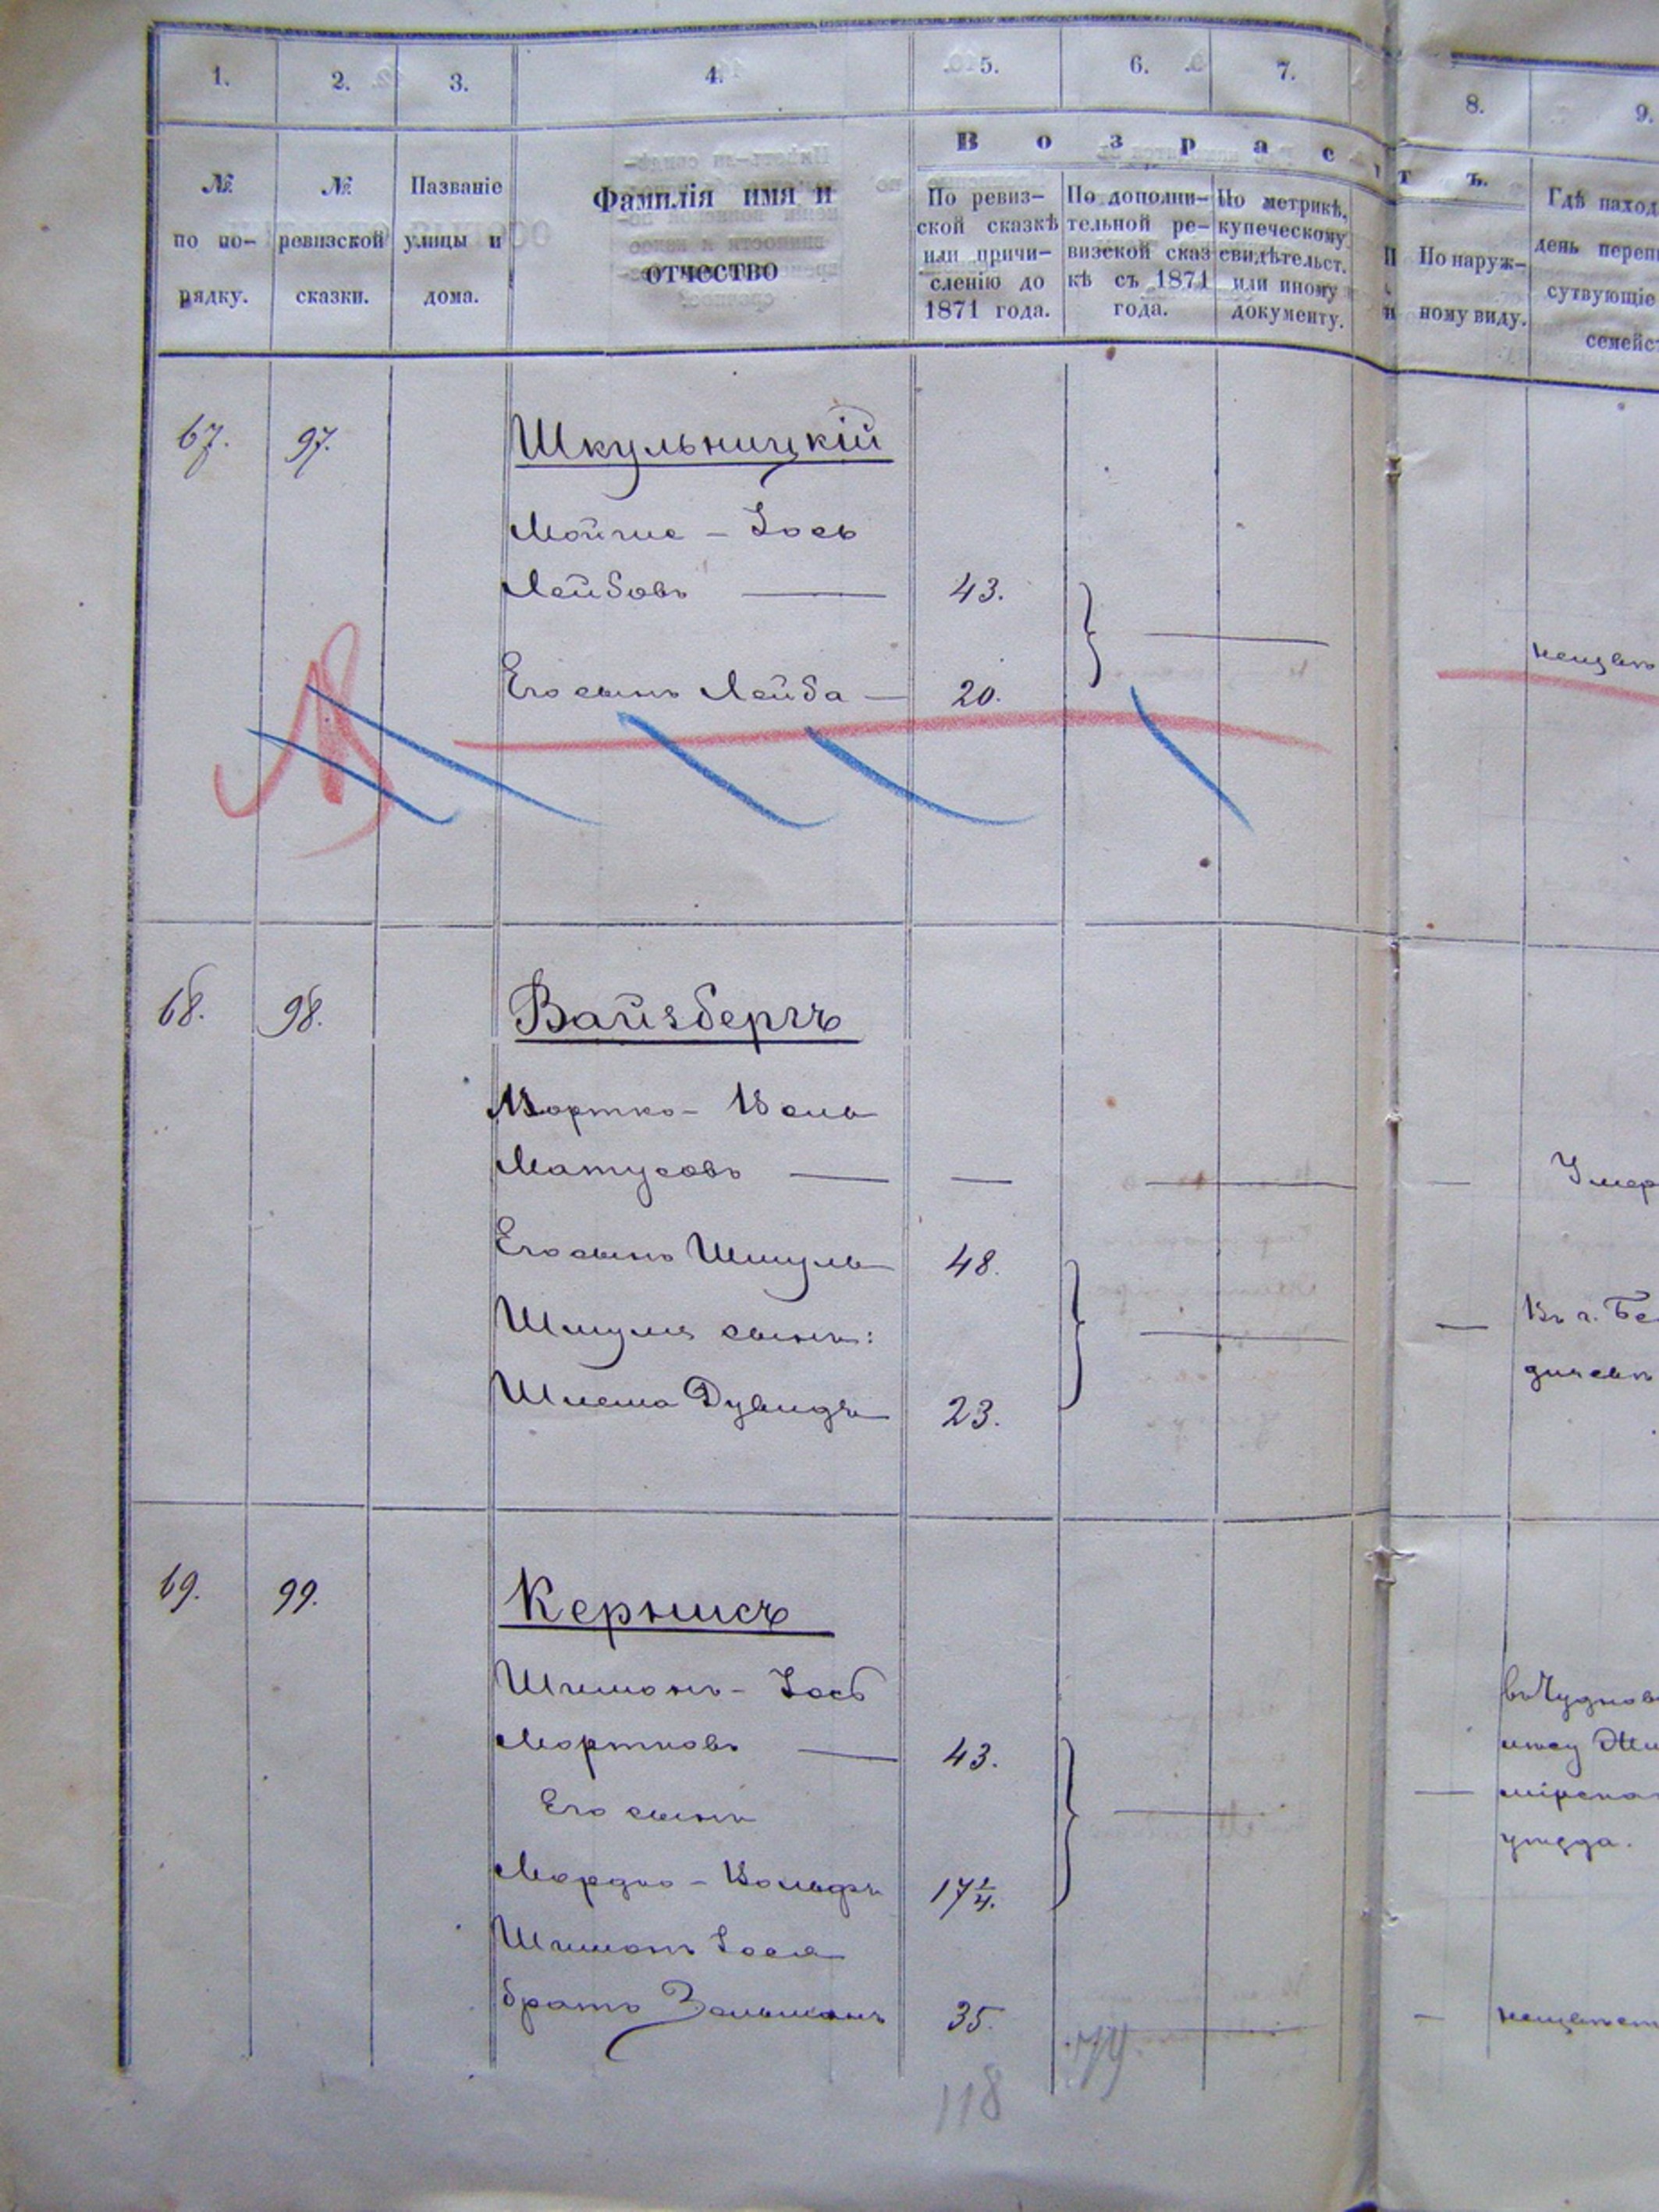 1. 2. 3. 4. 5. 6. 7. 8. 9.
В о з р а с т ъ.
№ по по-рядку.
№ ревизской сказки.
Названіе улицы и дома.
Фамилія имя и
отчество
По ревиз-
ской сказкѣ
или причи-
сленію до
1871 года.
По дополни-
тельной ре-
визской сказ
кѣ съ 1871
года.
По метрикѣ,
купеческому
свидѣтельст.
или иному
документу.
По наруж-
ному виду.
Гдѣ наход
день переп
сутвующіе
семейс
67. 97. Шкульницкій
Мойше - Іось
Лейбовъ — 43.
Его сынъ Лейба — 20.
68. 98. Вайзбергъ
Мортко -
Матусовъ — —
Умер
Его сынъ Шмуль 48.
Шмуля сынъ:
Въ г. Бе
Шлема Дувидъ 23.
дичевѣ
69. 99. Кернисъ
Шимонъ - Іось
въ Чуднов
Мортковъ — 43.
Его сынъ
Мордко - Вольфъ 17 1/4.
уѣзда.
Шимонъ Іося
братъ Зельманъ 35.
118